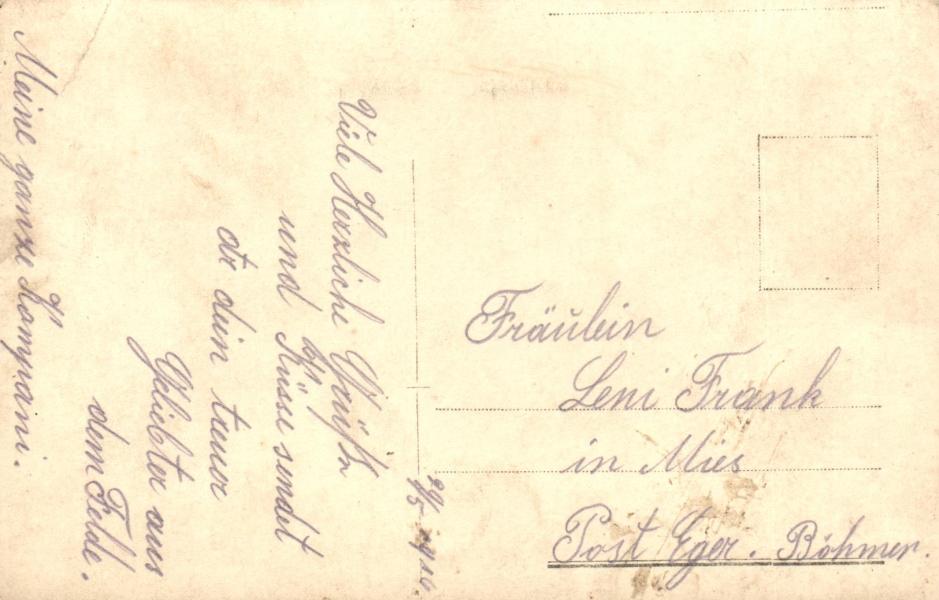 Viele Herzliche Grüße
und Küsse sendet
dir dein teuer
Gelibter aus
dem Felde.
Meine ganze Kompani.
1916
Fräulein
Leni Frank
in Mies
Post Eger. Böhmen.